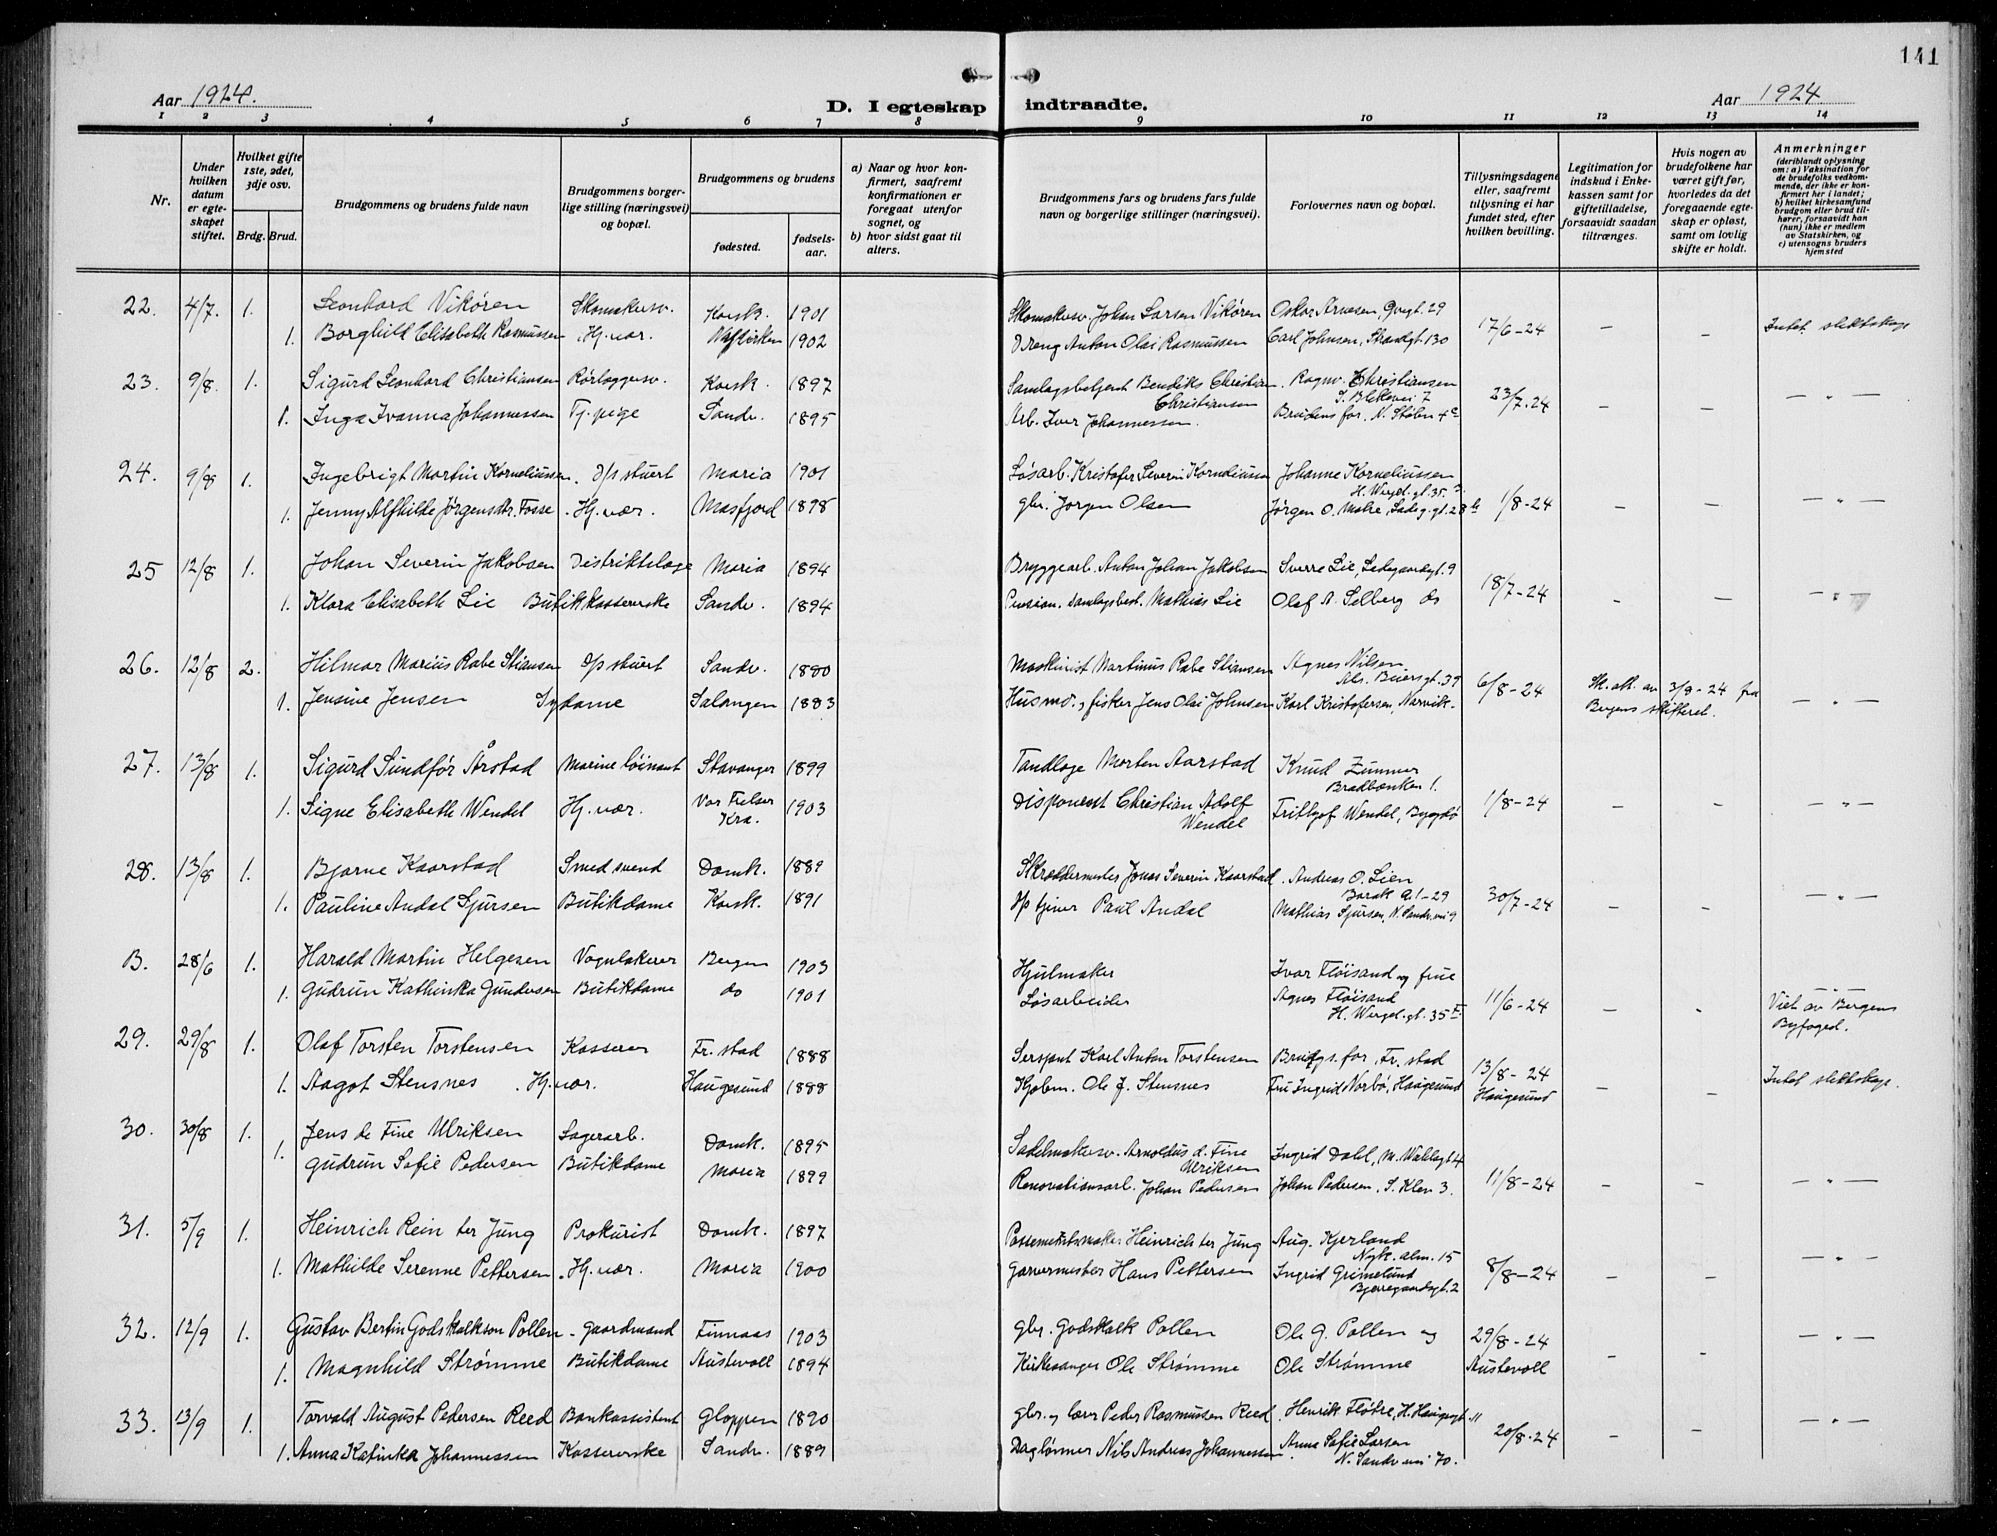 141
Aar 1924.
D. I egteskap indtraadte.
Aar 1924
1 2 3 4 5 6 7 8 9 10 11 12 13 14
Nr.
Under hvilken datum er egteskapet stiftet.
Hvilket gifte 1ste, 2det, 3dje osv.
Brdg. Brud.
Brudgommens og brudens fulde navn
Brudgommens borgerlige stilling (næringsvei) og bopæl.
Brudgommens og brudens
fødested.
fødselsaar.
a) Naar og hvor konfirmert, saafremt konfirmationen er foregaat utenfor sognet, og
b) hvor sidst gaat til alters.
Brudgommens fars og brudens fars fulde navn og borgerlige stillinger (næringsvei).
Forlovernes navn og bopæl.
Tillysningsdagene eller, saafremt tillysning ei har fundet sted, efter hvilken bevilling.
Legitimation for indskud i Enkekassen samt for giftetilladelse, forsaavidt saadan tiltrænges.
Hvis nogen av brudefolkene har været gift før, hvorledes da det foregaaende egteskap er opløst, samt om lovlig skifte er holdt.
Anmerkninger
(deriblandt oplysning om: a) Vaksination for de brudefolks vedkommende, der ikke er konfirmert her i landet; b) hvilket kirkesamfund brudgom eller brud tilhører, forsaavidt han (hun) ikke er medlem av Statskirken, og c) utensogns bruders hjemsted
22. 4/7. 1. Leonhard Vikören Skomakersv. Korsk. 1901 Skomakersv. Johan Larsen Vikören Oskar Arnesen, Qvegt. 29 17/6-24 – – Intet slektskap
1. Borghild Elisabeth Rasmussen Hj. vær. 1902 Dreng Anton Olai Rasmussen Carl Johnsen, Strandgt 130
23. 9/8. 1. Sigurd Leonhard Christiansen Rörlæggersv. Korsk. 1897 Samlagsbetjent Bendiks Christian Christiansen Ragnv. Christiansen S. Blekevei 7 23/7-24 – – – " –
1. Inga Ivanna Johannessen Tj. pige Sandv. 1895 Arb. Iver Johannessen. Brudens far, N. Stölen 4c
24. 9/8 1. Ingebrigt Martin Korneliussen D/s stuert Maria 1901 Løsarb. Kristofer Severin Korneliussen Johanne Korneliussen H. Wergel. gt. 35. 1/8-24 – – – " –
1. Jenny Alfhilde Jørgensdtr. Fosse Hj. vær. Masfjord 1898 gbr. Jørgen Olsen Jörgen O. Matre, Ladeg. gt. 28b
25 12/8 1. Johan Severin Jakobsen Distriktslæge Maria 1894 Bryggearb. Anton Johan Jakobsen Sverre Lie, Ladegaardsgt. 9 18/7-24 – – – " –
1. Klara Elisabeth Lie Butikkassererske Sandv. 1894 Pension. samlagsbest. Mathias Lie Olaf A. Selberg do
26. 12/8 2. Hilmar Marius Rabe Stiansen D/s stuert Sandv. 1880 Maskinist Martinus Rabe Stiansen Agnes Nilsen Als. Buersgt. 39 6/8-24 Sk. att. av 3/9-24 fra Bergens skifteret. – " –
1. Jensine Jensen Sydame Salangen 1883 Husmd., fisker Jens Olai Johnsen Karl Kristofersen, Narvik.
27. 13/8 1. Sigurd Sundfør Årstad Marine löinant Stavanger 1899 Tandlæge Morten Aarstad Knud Zimmer Bradbænken 1. 1/8-24 – – – " –
1. Signe Elisabeth Wendel Hj. vær. Vor Frelser Kra. 1903 Disponent Christian Adolf Wendel Frithjof Wendel, Bygdö
28. 13/8 1. Bjarne Kaarstad Smedsvend Domk. 1889 Skræddermester Jonas Severin Kaarstad Andreas O. Lien Barak A.1-29 30/7-24 – – – " –
1. Pauline Andal Sjursen Butikdame Korsk. 1891 D/s tjener Paul Andal Mathias Sjursen, N. Sandv. vei 9
B. 28/6 1. Harald Martin Helgesen Vognlakerer Bergen 1903 Hjulmaker Ivar Flöisand og frue 11/6-24 – – Viet av Bergens Byfoged.
1. Gudrun Kathinka Gundersen Butikdame do 1901 Løsarbeider Agnes Flöisand H. Wergel. gt. 35
29. 29/8 1. Olaf Torsten Torstensen Kasserer Fr. stad 1888 Sersjant Karl Anton Torstensen Brudgs. far, Fr. stad 13/8-24 Haugesund – – Intet slektskap.
1. Aagot Stensnes Hj. vær. Haugesund 1888 Kjøbm. Ole J. Stensnes Fru Ingrid Norbö, Haugesund
30. 30/8 1. Jens de Fine Ulriksen Lagerarb. Domk. 1895 Sadelmakersv. Arnoldus d. Fine Ulriksen Ingrid Dahl, M. 11/8-24 – – – " –
1. Gudrun Sofie Pedersen Butikdame Maria 1899 Renovationsarb. Johan Pedersen Johan Pedersen, S. Klev 3.
31. 5/9 1. Heinrich Rein ter Jung Prokurist Domk. 1897 Possementmaker Heinrich ter Jung Aug. Kjerland Nyk. alm. 15 8/8-24 – – – " –
1. Mathilde Serenne Pettersen Hj. vær. Maria 1900 Garvermester Hans Pettersen Ingrid Grimelund Bjerregaardsgt. 2
32. 12/9 1. Gustav Bertin Godskalkson Pollen Gaardmand Finnaas 1903 gbr. Godskalk Pollen Ole G. Pollen og 29/8-24 – – – " –
1. Magnhild Strømme Butikdame Austevoll 1894 Kirkesanger Ole Strømme Ole Strømme Austevoll
33. 13/9 1. Torvald August Pedersen Reed Bankassistent Gloppen 1890 gbr. og lærer Peder Rasmussen Reed Henrik Fløtre, H. Haugesgt. 11 20/8-24 – – – " –
1. Anna Katinka Johannessen Kassererske Sandv. 1889 Daglønner Nils Andreas Johannessen Anna Sofie Larsen N. Sandv. vei 70.